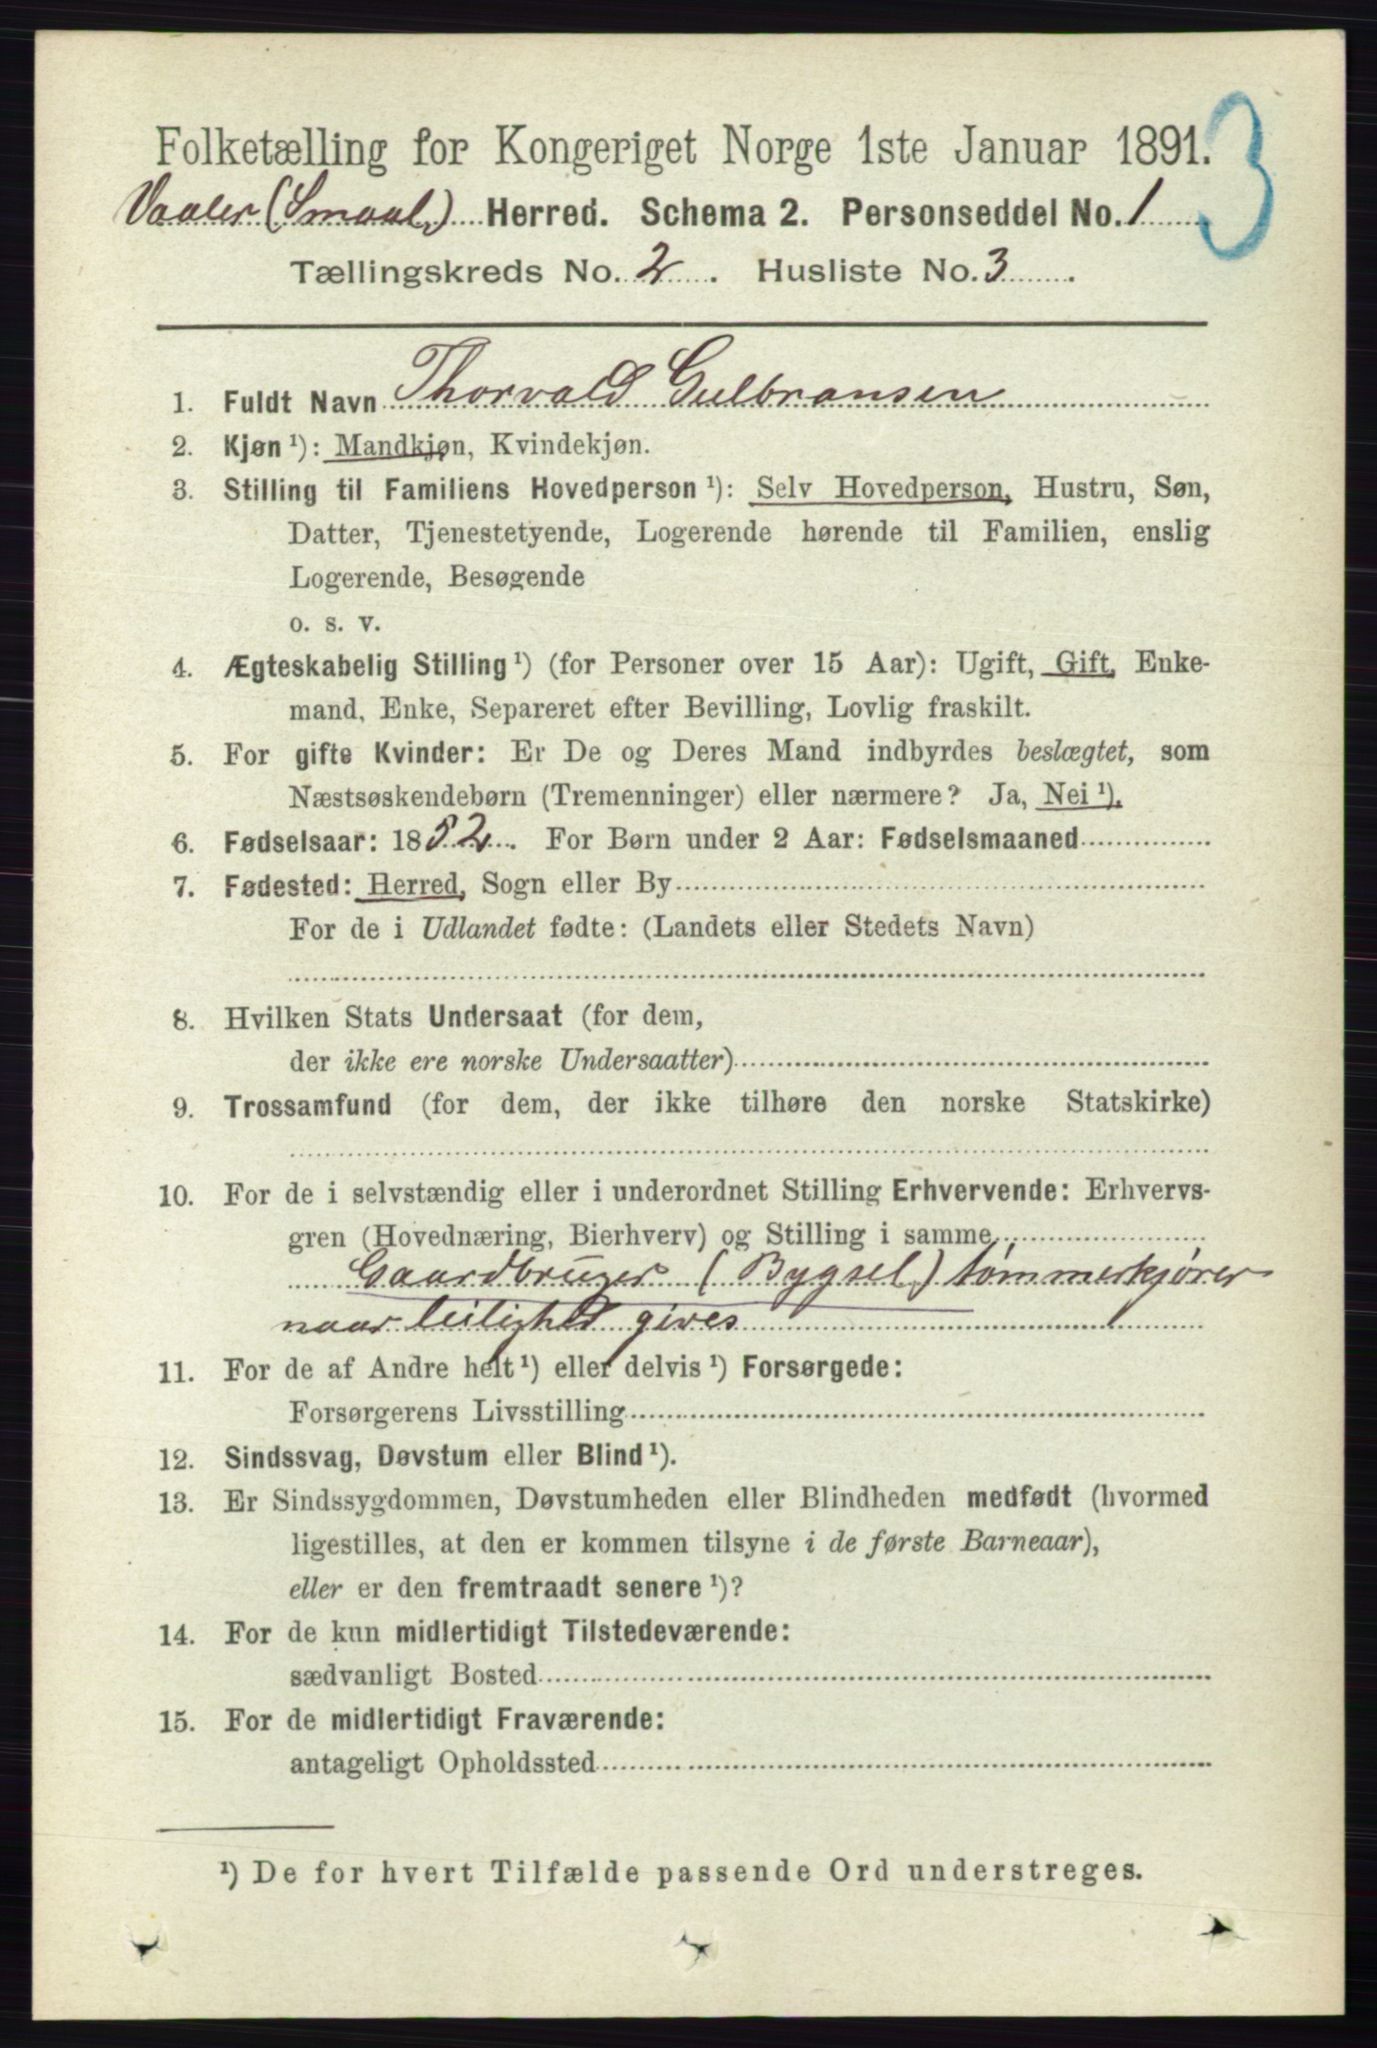 3
Folketælling for Kongeriget Norge 1ste Januar 1891.
Vaaler (Smaal.) Herred. Schema 2. Personseddel No. 1
Tællingskreds No. 2. Husliste No. 3.
1. Fuldt Navn Thorvald Gulbransen
2. Kjøn ¹): Mandkjøn, Kvindekjøn.
3. Stilling til Familiens Hovedperson ¹): Selv Hovedperson, Hustru, Søn,
Datter, Tjenestetyende, Logerende hørende til Familien, enslig
Logerende, Besøgende
o. s. v.
4. Ægteskabelig Stilling ¹) (for Personer over 15 Aar): Ugift, Gift, Enke-
mand, Enke, Separeret efter Bevilling, Lovlig fraskilt.
5. For gifte Kvinder: Er De og Deres Mand indbyrdes beslægtet, som
Næstsøskendebørn (Tremenninger) eller nærmere? Ja, Nei ¹).
6. Fødselsaar: 1852. For Børn under 2 Aar: Fødselsmaaned
7. Fødested: Herred, Sogn eller By
For de i Udlandet fødte: (Landets eller Stedets Navn)
8. Hvilken Stats Undersaat (for dem,
der ikke ere norske Undersaatter)
9. Trossamfund (for dem, der ikke tilhøre den norske Statskirke)
10. For de i selvstændig eller i underordnet Stilling Erhvervende: Erhvervs-
gren (Hovednæring, Bierhverv) og Stilling i samme
Gaardbruger (Bygsel) tømmerkjører
naar leilighed gives
11. For de af Andre helt ¹) eller delvis ¹) Forsørgede:
Forsørgerens Livsstilling
12. Sindssvag, Døvstum eller Blind ¹).
13. Er Sindssygdommen, Døvstumheden eller Blindheden medfødt (hvormed
ligestilles, at den er kommen tilsyne i de første Barneaar),
eller er den fremtraadt senere ¹)?
14. For de kun midlertidigt Tilstedeværende:
sædvanligt Bosted
15. For de midlertidigt Fraværende:
antageligt Opholdssted
¹) De for hvert Tilfælde passende Ord understreges.